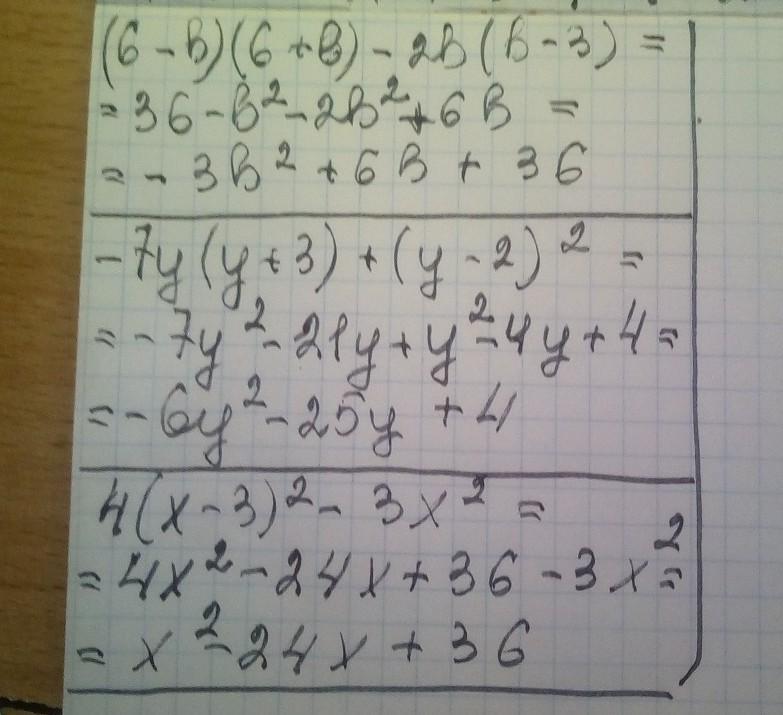 (6 - в)(6 + в) - 2в(в - 3) =
= 36 - в² - 2в² + 6в =
= - 3в² + 6в + 36
- 7y(y + 3) + (y - 2)² =
= - 7y² - 21y + y² - 4y + 4 =
= - 6y² - 25y + 4
4(x - 3)² - 3x² =
= 4x² - 24x + 36 - 3x² =
= x² - 24x + 36